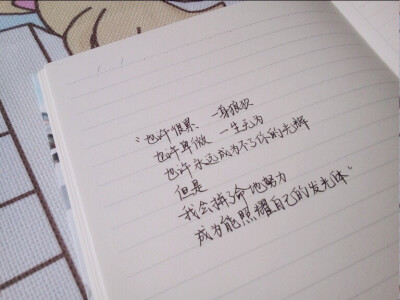 “也许很累 一身狼狈
也许卑微 一生无为
也许永远成为不了你的光辉
但是
我会拼了命地努力
成为能照耀自己的发光体”